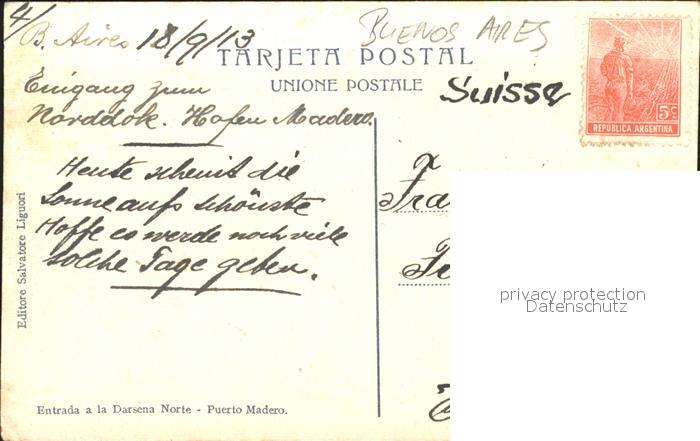 4/
B. Aires 18/9/13
BUENOS AIRES
TARJETA POSTAL
UNIONE POSTALE
Suisse
5c.
REPUBLICA ARGENTINA
Eingang zum
Norddok. Hafen Madero.
Heute scheint die
Sonne aufs schönste
Hoffe es werde noch viele
solche Tage geben.
Fra
Editore Salvatore Liguori
privacy protection
Datenschutz
Entrada a la Darsena Norte - Puerto Madero.